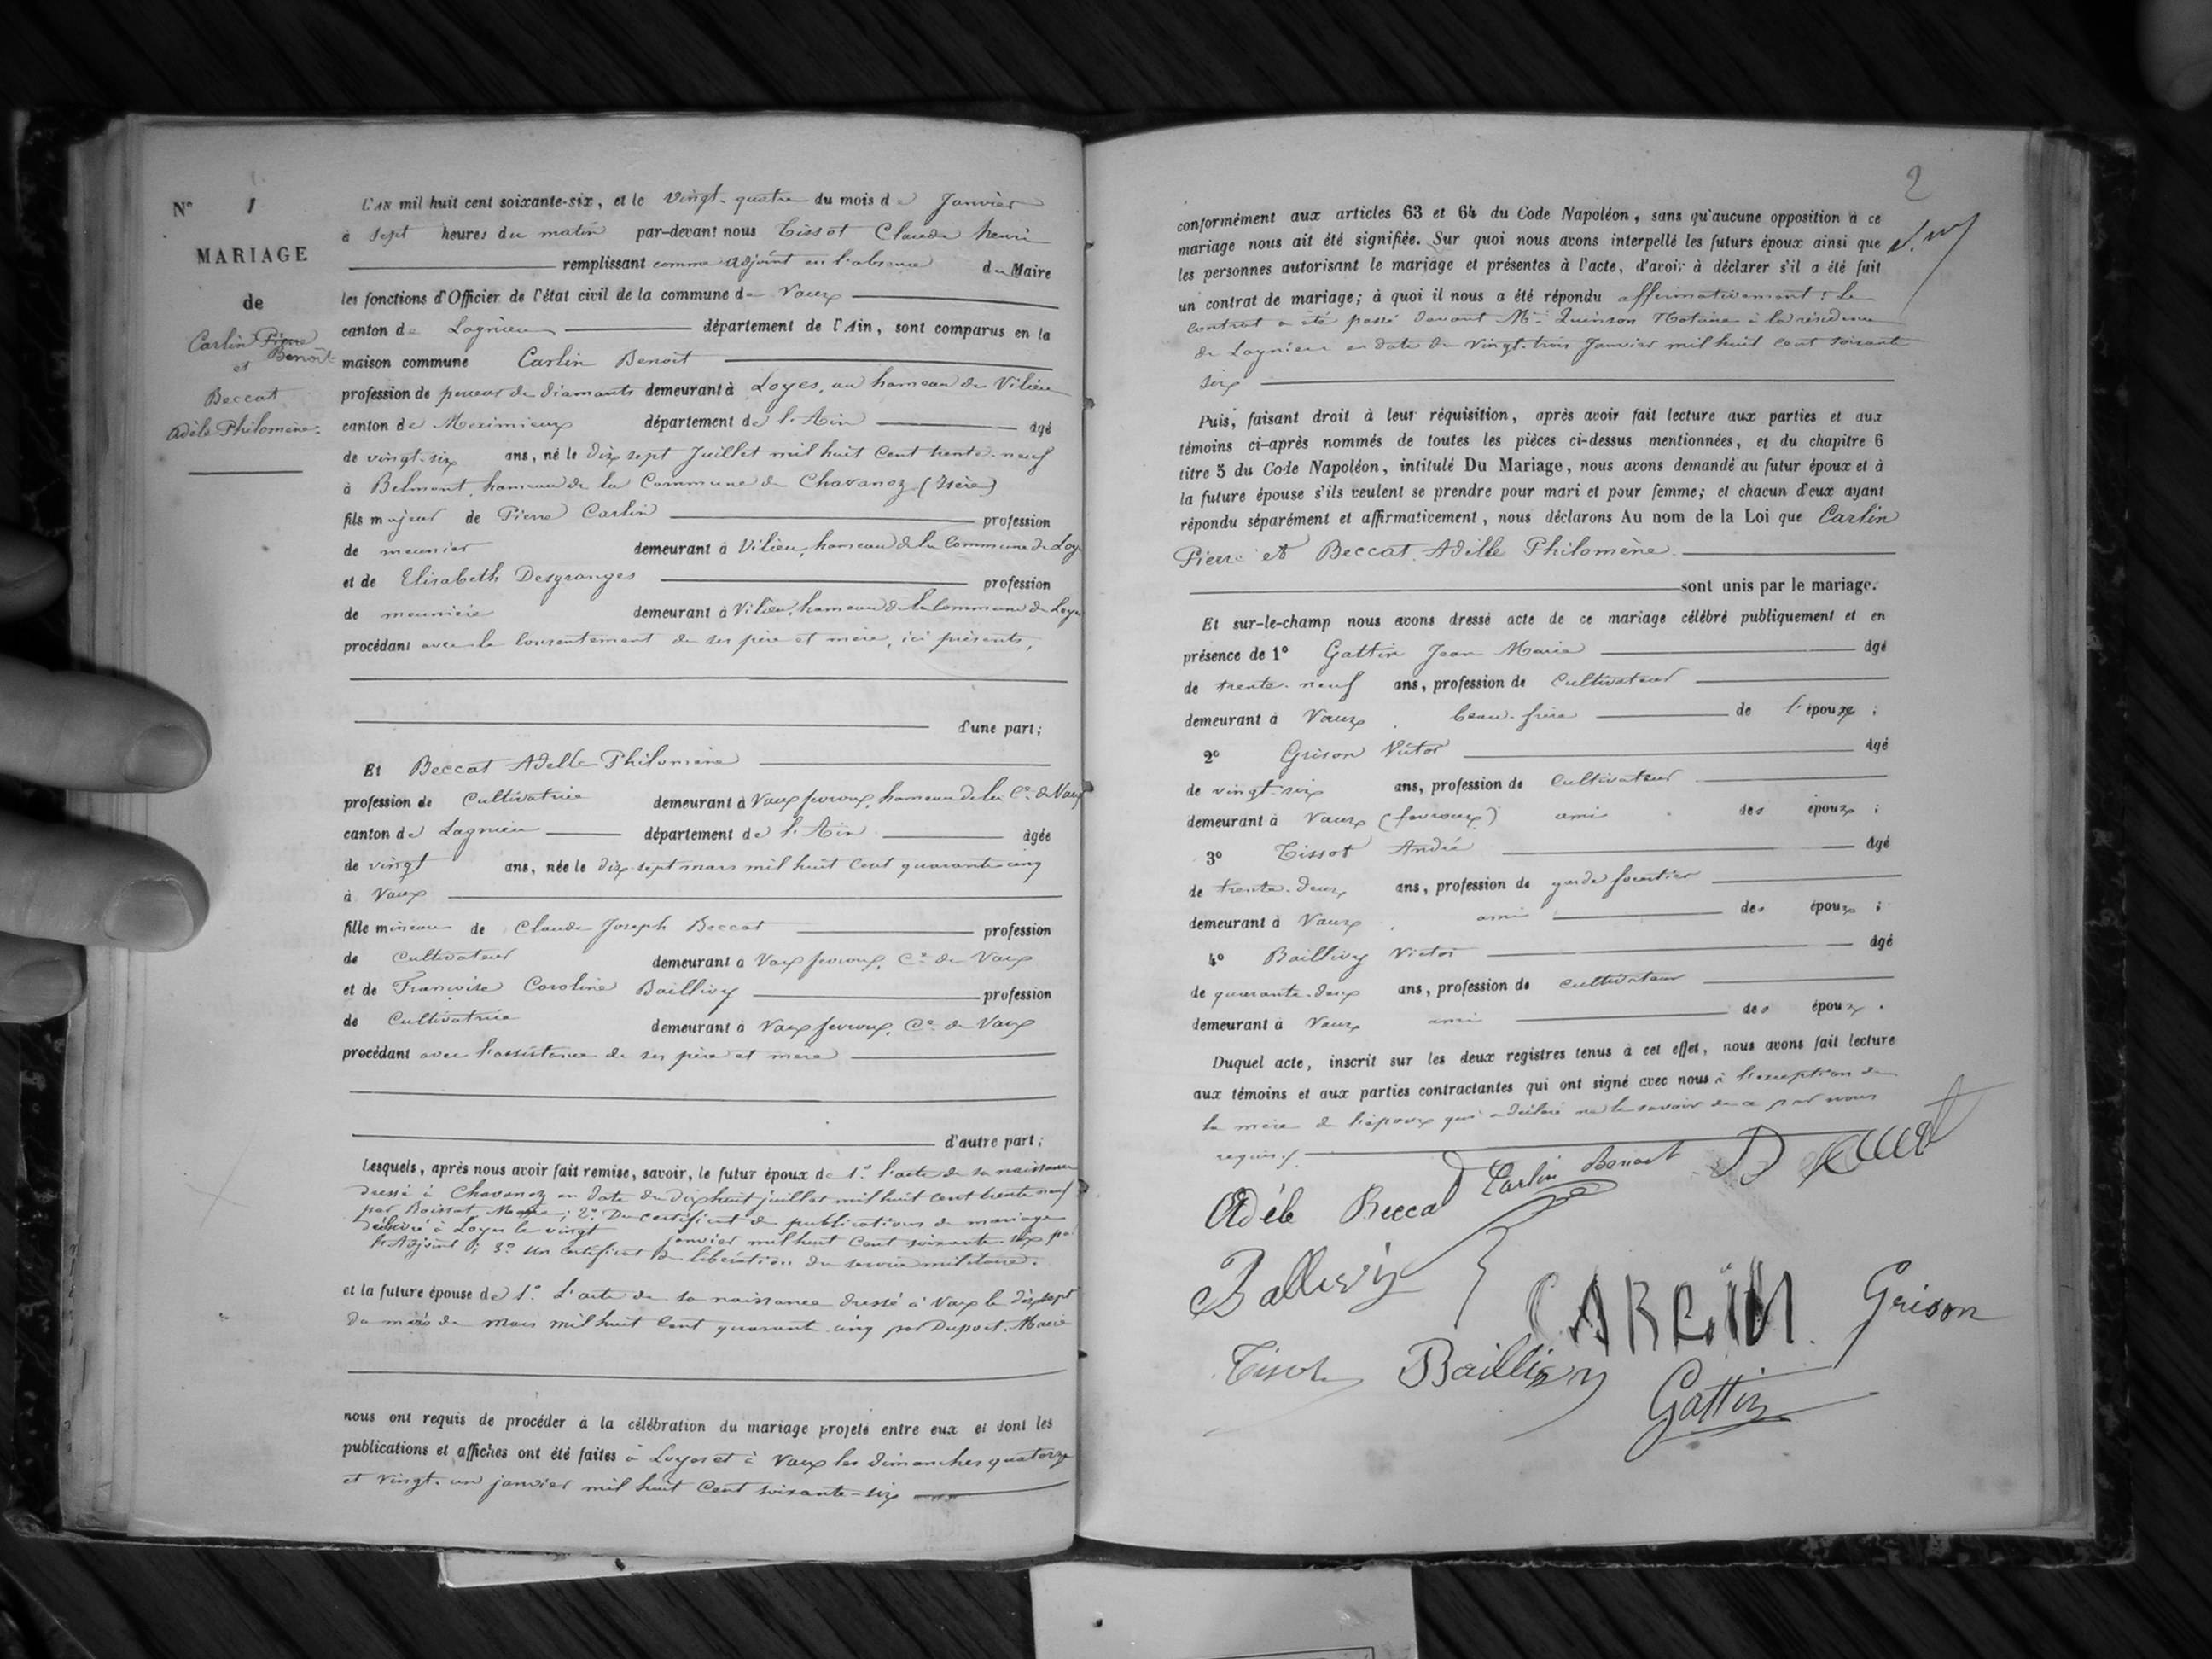 N° 1
MARIAGE
de
Carlin Pierre
Benoît
et
Beccat
Adèle Philomène.
L'AN mil huit cent soixante-six, et le vingt-quatre du mois de Janvier
à sept heures du matin par-devant nous Tissot Claude henri
remplissant comme adjoint en l'absence du Maire
les fonctions d'Officier de l'état civil de la commune de Vaux
canton de Lagnieu département de l'Ain, sont comparus en la
maison commune Carlin Benoit
profession de perceur de diamants demeurant à Loyes, au hameau de Vilieu
canton de Meximieux département de l'Ain âgé
de vingt-six ans, né le dix sept Juillet mil huit cent trente-neuf
à Belmont, hameau de la Commune de Chavanoz (Isère)
fils majeur de Pierre Carlin profession
de meunier demeurant à Vilieu, hameau de la Commune de Loy
et de Elisabeth Desgranges profession
de meunière demeurant à Vilieu, hameau de la Commune de Loyes
procédant avec le consentement de ses père et mère, ici présents,
d'une part;
Et Beccat Adelle Philomène
profession de Cultivatrice demeurant à Vaux fevroux, hameau de la Cne de Vaux
canton de Lagnieu département de l'Ain âgée
de vingt ans, née le dix-sept mars mil huit cent quarante cinq
à Vaux
fille mineure de Claude Joseph Beccat profession
de Cultivateur demeurant à Vaux fevroux, Cne de Vaux
et de Françoise Caroline Baillivy profession
de Cultivatrice demeurant à Vaux fevroux, Cne de Vaux
procédant avec l'assistance de ses père et mère
d'autre part;
Lesquels, après nous avoir fait remise, savoir, le futur époux de 1° l'acte de sa naissance
dressé à Chavanoz en date du dix huit juillet mil huit cent trente neuf
par Boissat Maire; 2° Du certificat de publications de mariage
délivré à Loyes le vingt janvier mil huit cent soixante-six par
l'Adjoint; 3° Un certificat de libération du service militaire.
et la future épouse de 1° L'acte de sa naissance dressé à Vaux le dix sept
du mois de mars mil huit cent quarante cinq par Duport, Maire
nous ont requis de procéder à la célébration du mariage projeté entre eux et dont les
publications et affiches ont été faites à Loyes et à Vaux les dimanches quatorze
et vingt-un janvier mil huit cent soixante-six
2
conformément aux articles 63 et 64 du Code Napoléon, sans qu'aucune opposition à ce
mariage nous ait été signifiée. Sur quoi nous avons interpellé les futurs époux ainsi que
les personnes autorisant le mariage et présentes à l'acte, d'avoir à déclarer s'il a été fait
un contrat de mariage; à quoi il nous a été répondu affirmativement: Le
contrat a été passé devant Me Quinson Notaire à la résidence
de Lagnieu en date du vingt-trois Janvier mil huit cent soixante
six
Puis, faisant droit à leur réquisition, après avoir fait lecture aux parties et aux
témoins ci-après nommés de toutes les pièces ci-dessus mentionnées, et du chapitre 6
titre 5 du Code Napoléon, intitulé Du Mariage, nous avons demandé au futur époux et à
la future épouse s'ils veulent se prendre pour mari et pour femme; et chacun d'eux ayant
répondu séparément et affirmativement, nous déclarons Au nom de la Loi que Carlin
Pierre et Beccat Adille Philomène
sont unis par le mariage.
Et sur-le-champ nous avons dressé acte de ce mariage célébré publiquement et en
présence de 1° Gattin Jean Marie âgé
de trente-neuf ans, profession de Cultivateur
demeurant à Vaux, beau-frère de l'épouxe;
2° Grison Victor âgé
de vingt-six ans, profession de Cultivateur
demeurant à Vaux (fevroux) ami des époux;
3° Tissot André âgé
de trente-deux ans, profession de garde forestier
demeurant à Vaux, ami des époux;
4° Baillivy Victor âgé
de quarante-deux ans, profession de cultivateur
demeurant à Vaux ami des époux.
Duquel acte, inscrit sur les deux registres tenus à cet effet, nous avons fait lecture
aux témoins et aux parties contractantes qui ont signé avec nous à l'exception de
la mère de l'époux qui a déclaré ne le savoir de ce par nous
requis./.
Carlin Benoit
Adèle Beccat
Ballivy
CARLIN
Grison
Tisot
Baillivy
Gattin